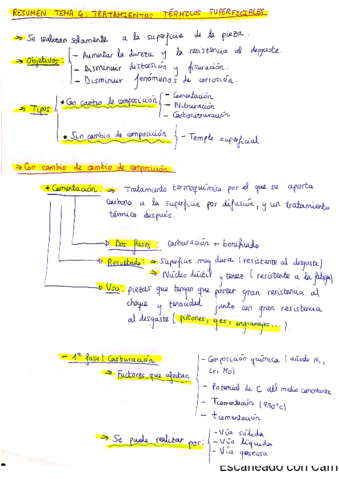 RESUMEN TEMA 6: TRATAMIENTOS TÉRMICOS SUPERFICIALES.
→ Se realizan solamente a la superficie de la pieza.
→ Objetivos:
- Aumentar la dureza y la resistencia al desgaste.
- Disminuir distorsión y fisuración.
- Disminuir fenómenos de corrosión.
→ Tipos
+ Con cambio de composición
- Cementación
- Nitruración
- Carbonitruración
+ Sin cambio de composición
- Temple superficial
→ Con cambio de cambio de composición
+ Cementación: → Tratamiento termoquímico por el que se aporta
carbono a la superficie por difusión, y un tratamiento
térmico después.
→ Dos fases: carburación + bonificado
→ Resultado: → Superficie muy dura (resistente al desgaste)
→ Núcleo dúctil y tenaz (resistente a la fatiga)
→ Uso: piezas que tengan que poseer gran resistencia al
choque y tenacidad junto con gran resistencia
al desgaste (piñones, ejes, engranajes...).
- 1ª fase: Carburación
→ Factores que afectan
- Composición química (añadir Ni,
Cr, Mo)
- Potencial de C del medio cementante
- Tcementación (930°C)
- tcementación
→ Se puede realizar por:
- Vía sólida
- Vía líquida
- Vía gaseosa
Escaneado con Cam